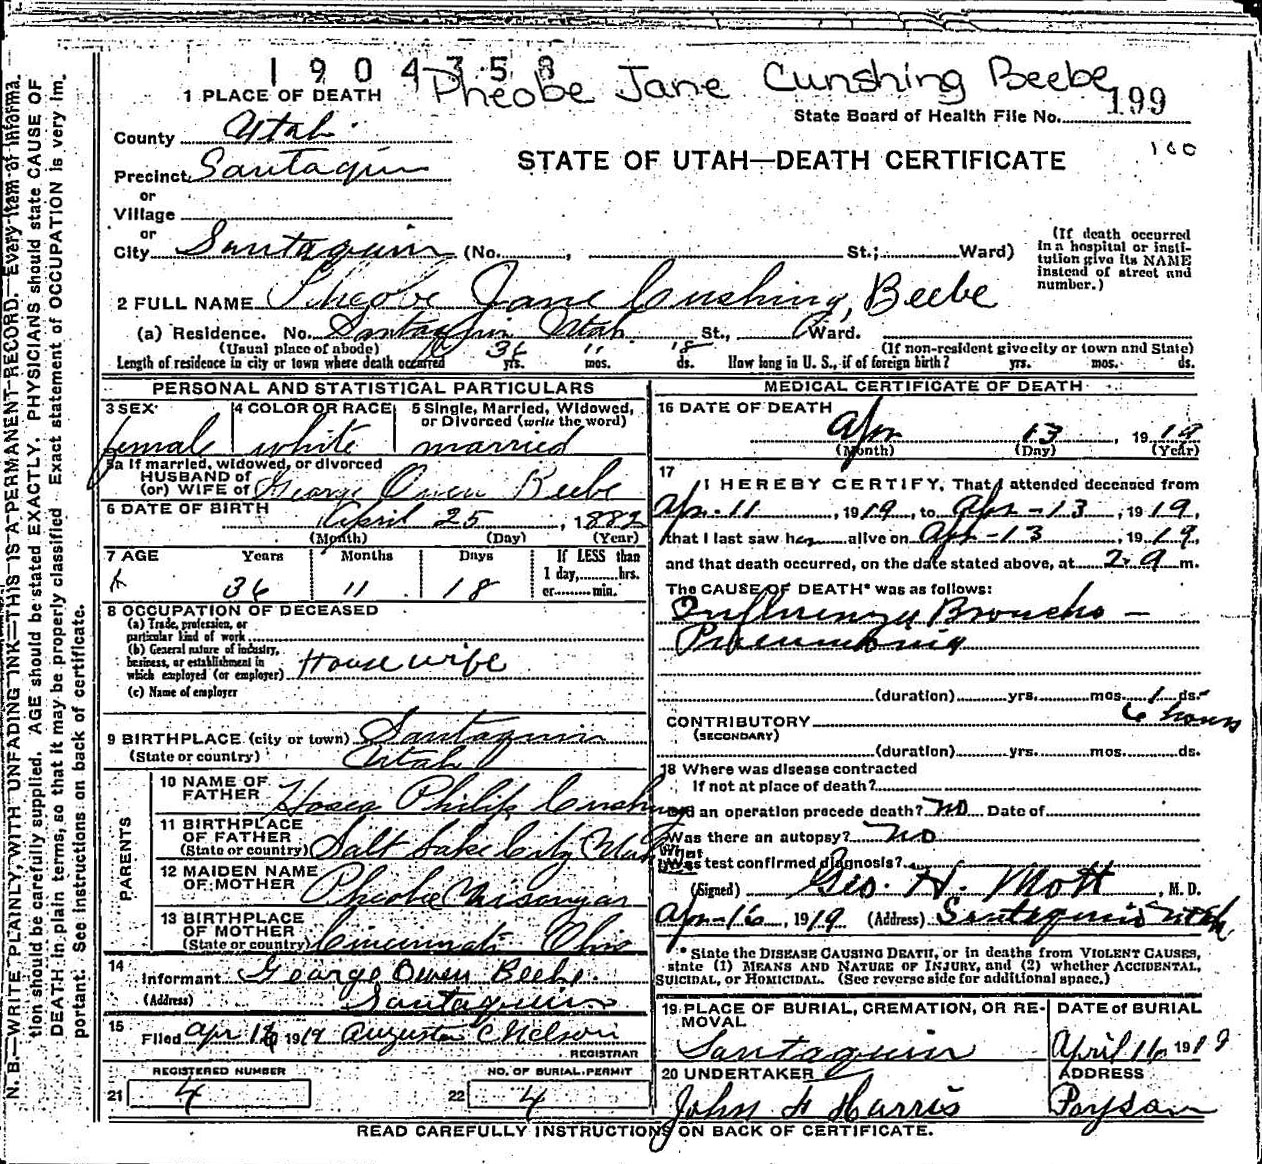 1904358
Pheobe Jane Cunshing Beebe
1 PLACE OF DEATH
199
State Board of Health File No.
County Utah
STATE OF UTAH—DEATH CERTIFICATE
160
Precinct Santaquin
or
Village
or
City Santaquin (No. , St.; Ward)
(If death occurred in a hospital or insti-
tution give its NAME
instead of street and
number.)
2 FULL NAME Pheobe Jane Cushing, Beebe
(a) Residence. No. Santaquin Utah St., Ward.
(Usual place of abode) (If non-resident give city or town and State)
Length of residence in city or town where death occurred 36 yrs. 11 mos. 18 ds. How long in U. S., if of foreign birth? yrs. mos. ds.
PERSONAL AND STATISTICAL PARTICULARS
3 SEX female
4 COLOR OR RACE white
5 Single, Married, Widowed,
or Divorced (write the word) married
5a If married, widowed, or divorced
HUSBAND of
(or) WIFE of George Owen Beebe
6 DATE OF BIRTH April 25, 1882
(Month) (Day) (Year)
7 AGE Years Months Days If LESS than
1 day, hrs.
36 11 18 or min.
8 OCCUPATION OF DECEASED
(a) Trade, profession, or
particular kind of work
(b) General nature of industry,
business, or establishment in
which employed (or employer) Housewife
(c) Name of employer
9 BIRTHPLACE (city or town) Santaquin
(State or country) Utah
PARENTS
10 NAME OF
FATHER Hosea Philip Cushing
11 BIRTHPLACE
OF FATHER
(State or country) Salt Lake City Utah
12 MAIDEN NAME
OF MOTHER Pheobe
13 BIRTHPLACE
OF MOTHER
(State or country) Cincinnati Ohio
14 Informant George Owen Beebe
(Address) Santaquin
15 Filed Apr 1919 Augusta C Nelson
REGISTRAR
REGISTERED NUMBER
21 4
NO. OF BURIAL PERMIT
22 4
MEDICAL CERTIFICATE OF DEATH
16 DATE OF DEATH
Apr 13, 1919
(Month) (Day) (Year)
17 I HEREBY CERTIFY, That I attended deceased from
Apr-11, 1919, to Apr-13, 1919,
that I last saw her alive on Apr-13, 1919,
and that death occurred, on the date stated above, at 2-a m.
The CAUSE OF DEATH* was as follows:
Influenza Broncho-
Pneumonia
(duration) yrs. mos. 1 ds.
6 hours
CONTRIBUTORY
(SECONDARY)
(duration) yrs. mos. ds.
18 Where was disease contracted
If not at place of death?
Did an operation precede death? No Date of
Was there an autopsy? No
What test confirmed diagnosis?
(Signed) Geo. H. Mott, M. D.
Apr-16, 1919 (Address) Santaquin Utah
* State the DISEASE CAUSING DEATH, or in deaths from VIOLENT CAUSES,
state (1) MEANS AND NATURE OF INJURY, and (2) whether ACCIDENTAL,
SUICIDAL, or HOMICIDAL. (See reverse side for additional space.)
19 PLACE OF BURIAL, CREMATION, OR RE-
MOVAL
Santaquin
DATE OF BURIAL
April 16 1919
20 UNDERTAKER
John F Harris
ADDRESS
Payson
READ CAREFULLY INSTRUCTIONS ON BACK OF CERTIFICATE.
N. B.—WRITE PLAINLY, WITH UNFADING INK—THIS IS A PERMANENT RECORD. Every item of informa-
tion should be carefully supplied. AGE should be stated EXACTLY. PHYSICIANS should state CAUSE OF
DEATH in plain terms, so that it may be properly classified. Exact statement of OCCUPATION is very im-
portant. See instructions on back of certificate.